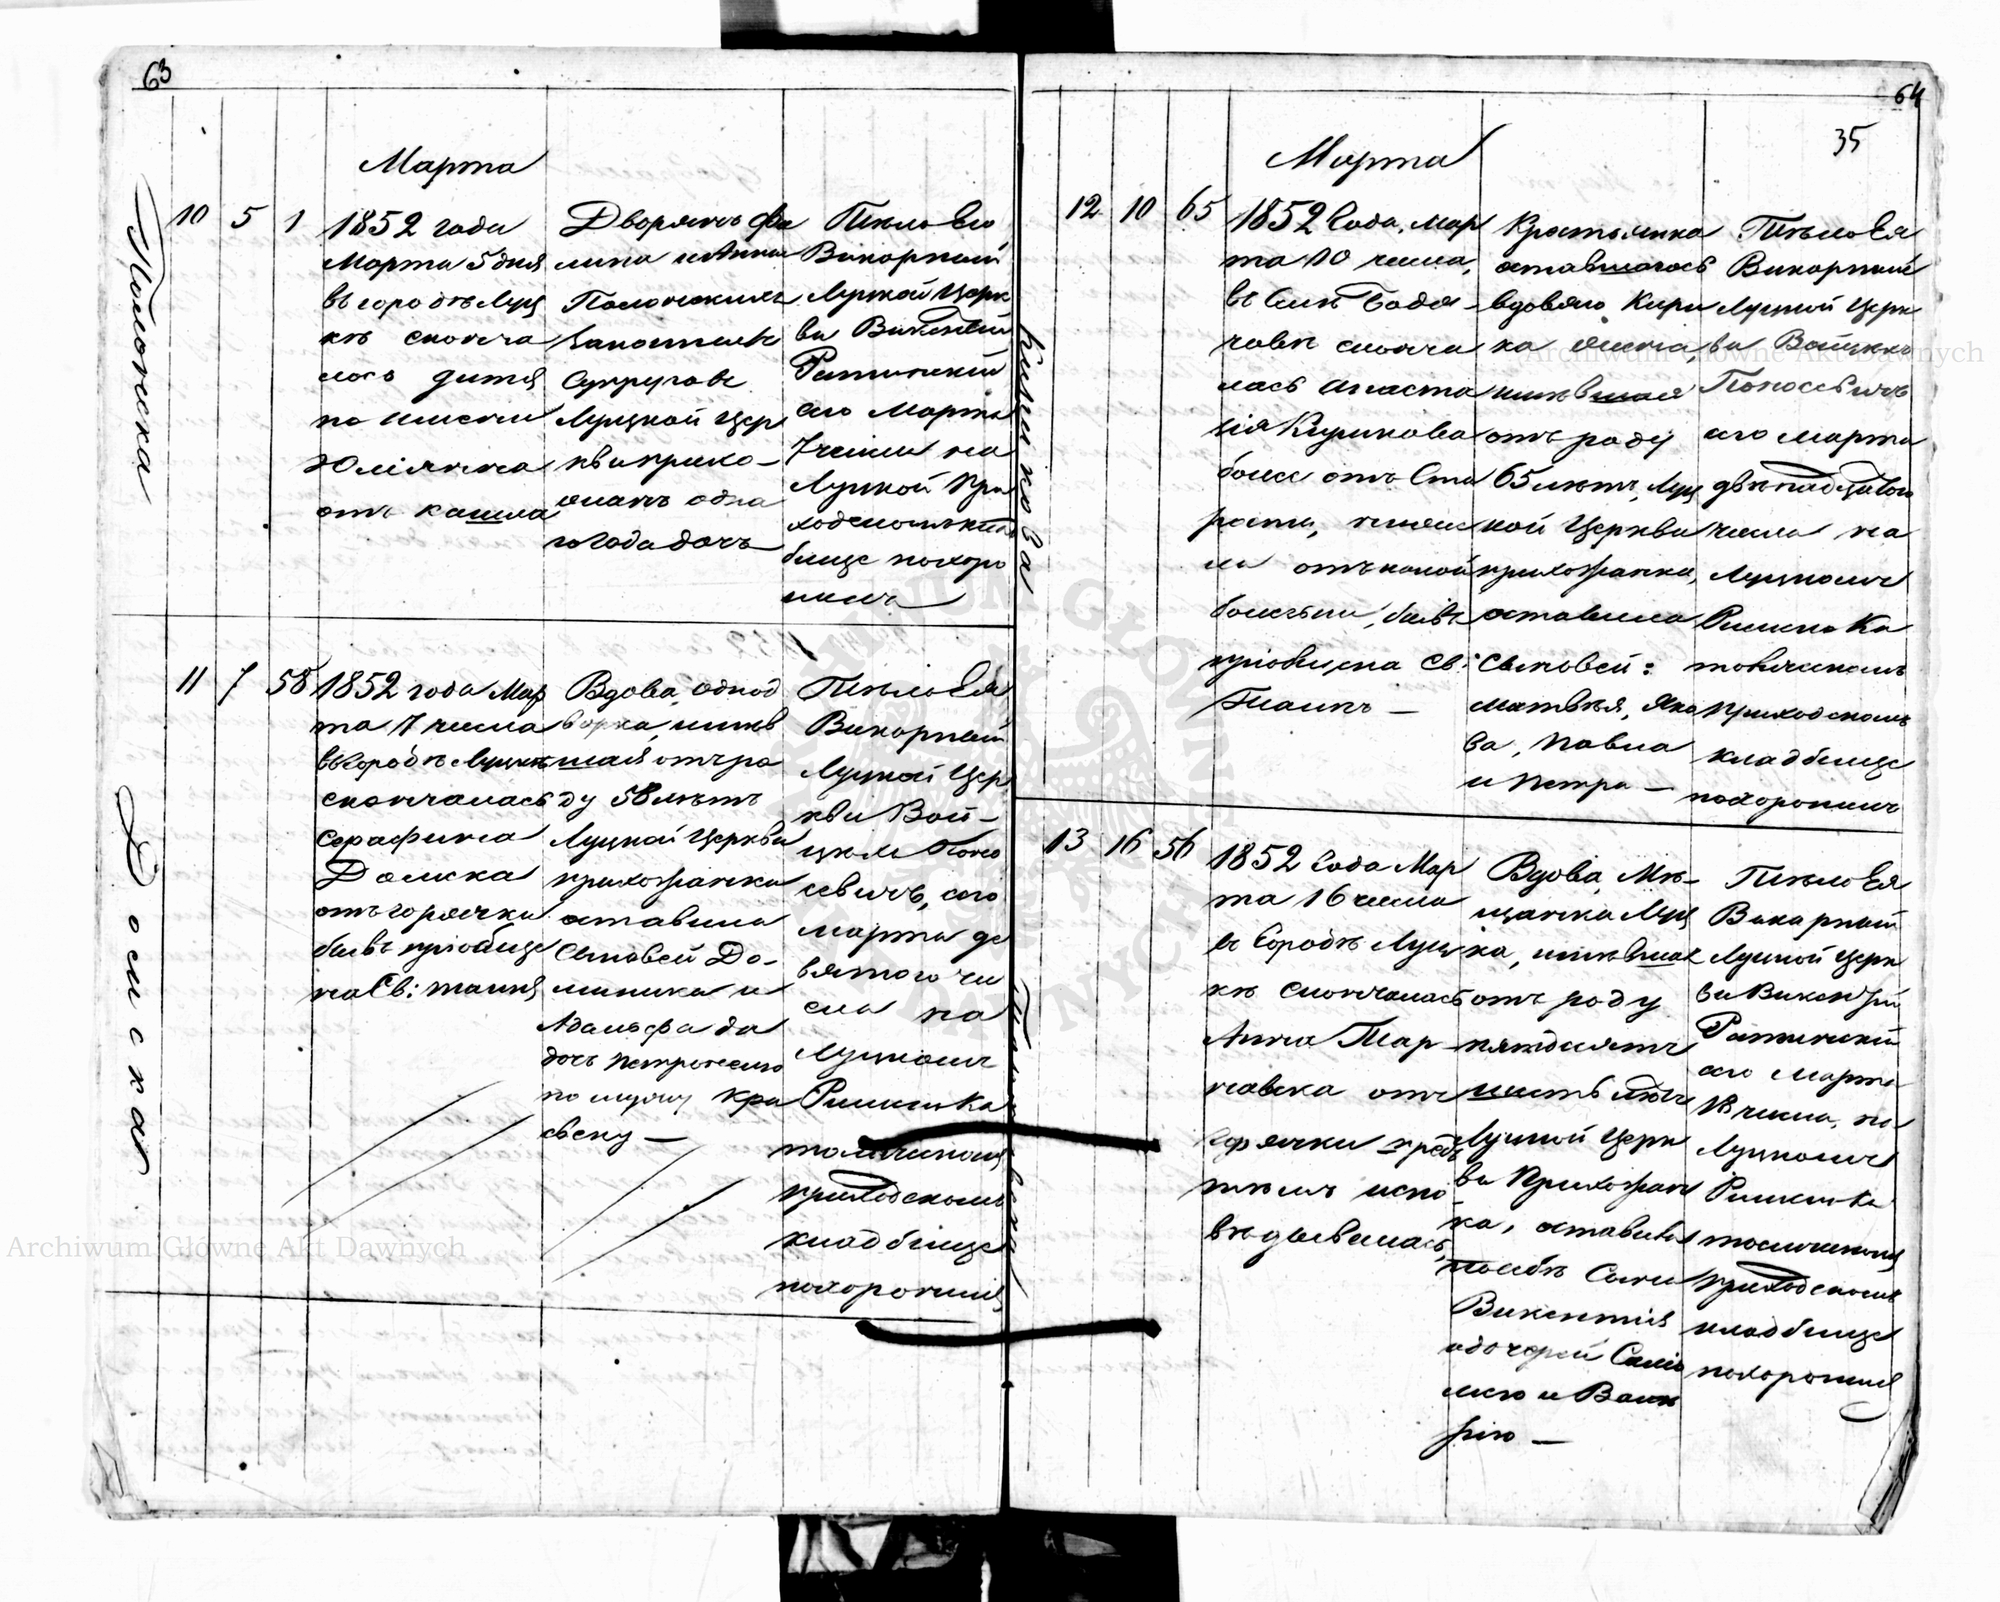 63
Марта
10 5 1
1852 года
Марта 5 дня
въ городѣ Луц
кѣ сконча
лось дитя
по имени
Юліянна
отъ кашля
Дворянъ Фе
Полонскихъ
Супруговъ
Луцкой Цер
кви прихо-
жанъ одна
го года дочь
Тѣло Ею
Викарный
Луцкой Церк
ви Викентій
сего Марта
7 числа на
Луцкой При
ходскомъ клад
бище похоро
ненъ
Полонска
11 7 58
1852 года Мар
та 7 числа
въ городѣ Луцкѣ
скончалась
Серафина
Домска
отъ горячки
бывъ пріобще
на Св: таинъ
Вдова, однод
ворка, имѣв
шая отъ ро
ду 58 лѣтъ
Луцкой Церкви
прихожанка
оставила
Сыновей До-
миника и
Адольфа да
дочь
Тѣло Ея
Викарный
Луцкой Цер
кви Вой-
цѣхъ Поно
севичъ, сего
марта де
вятого чи
сла на
Луцкомъ
Римско Ка
толическомъ
приходскомъ
кладбище
похоронилъ
Домская
64
35
Марта
12 10 65
1852 Года, Мар
та 10 числа,
въ Селѣ Бодя-
човѣ сконча
лась Анаста
зія Куликова
болѣе отъ Ста
рости, нежели
ли отъ какой
болезни, бывъ
пріобщена Св:
Таинъ —
Крестьянка
оставшаяся
вдовою Кири
ка жена,
имѣвшая
отъ роду
65 лѣтъ, Луц
кой Церкви
прихожанка,
оставила
Сыновей:
Матвѣя, Яко
ва, Павла
и Петра —
Тѣло Ея
Викарный
Луцкой Церк
ви Войцѣхъ
Поносевичъ
сего марта
двѣнадцатого
числа на
Луцкомъ
Римско Ка
толическомъ
приходскомъ
кладбище
похоронилъ
Куликова
13 16 56
1852 Года Мар
та 16 числа
въ Городѣ Луц
кѣ скончалась
Анна Тар
навска отъ
горячки предъ
тѣмъ испо
вѣдывалась,
Вдова, Мѣ-
щанка Луц
ка, имѣвшая
отъ роду
пятдесятъ
шесть лѣтъ
Луцкой Церк
ви Прихожан
ка, оставила
послѣ Себя Сына
Викентія
и дочерей Сало
мею и Вале
рію —
Тѣло Ея
Викарный
Луцкой Церк
ви Викентій
сего Марта
18 числа, на
Луцкомъ
Римско Ка
толическомъ
приходскомъ
кладбище
похоронилъ
Archiwum Główne Akt Dawnych
Archiwum Główne Akt Dawnych
ARCHIWUM GŁÓWNE AKT DAWNYCH